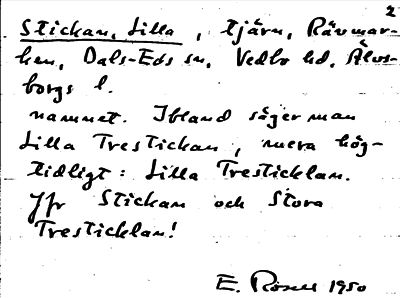 2
Stickan, Lilla, tjärn, Rävmar-
ken, Dals-Eds sn, Vedbo hd, Älvs-
borgs l.
namnet. Ibland säger man
Lilla Trestickan, mera hög-
tidligt: Lilla Tresticklan.
Jfr Stickan och Stora
Tresticklan!
E. Rosell 1950